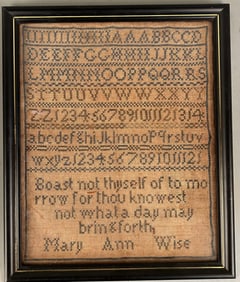 AABBCCD
DEEFFGGHHIIJJKKL
LMMNNOOPPQQRRS
STTUUVVWWXXYY
ZZ1234567891011121314
abcdefghijklmnopqrstuv
wxyz123456789101112
Boast not thyself of to mo
rrow for thou knowest
not what a day may
bring forth,
Mary Ann Wise